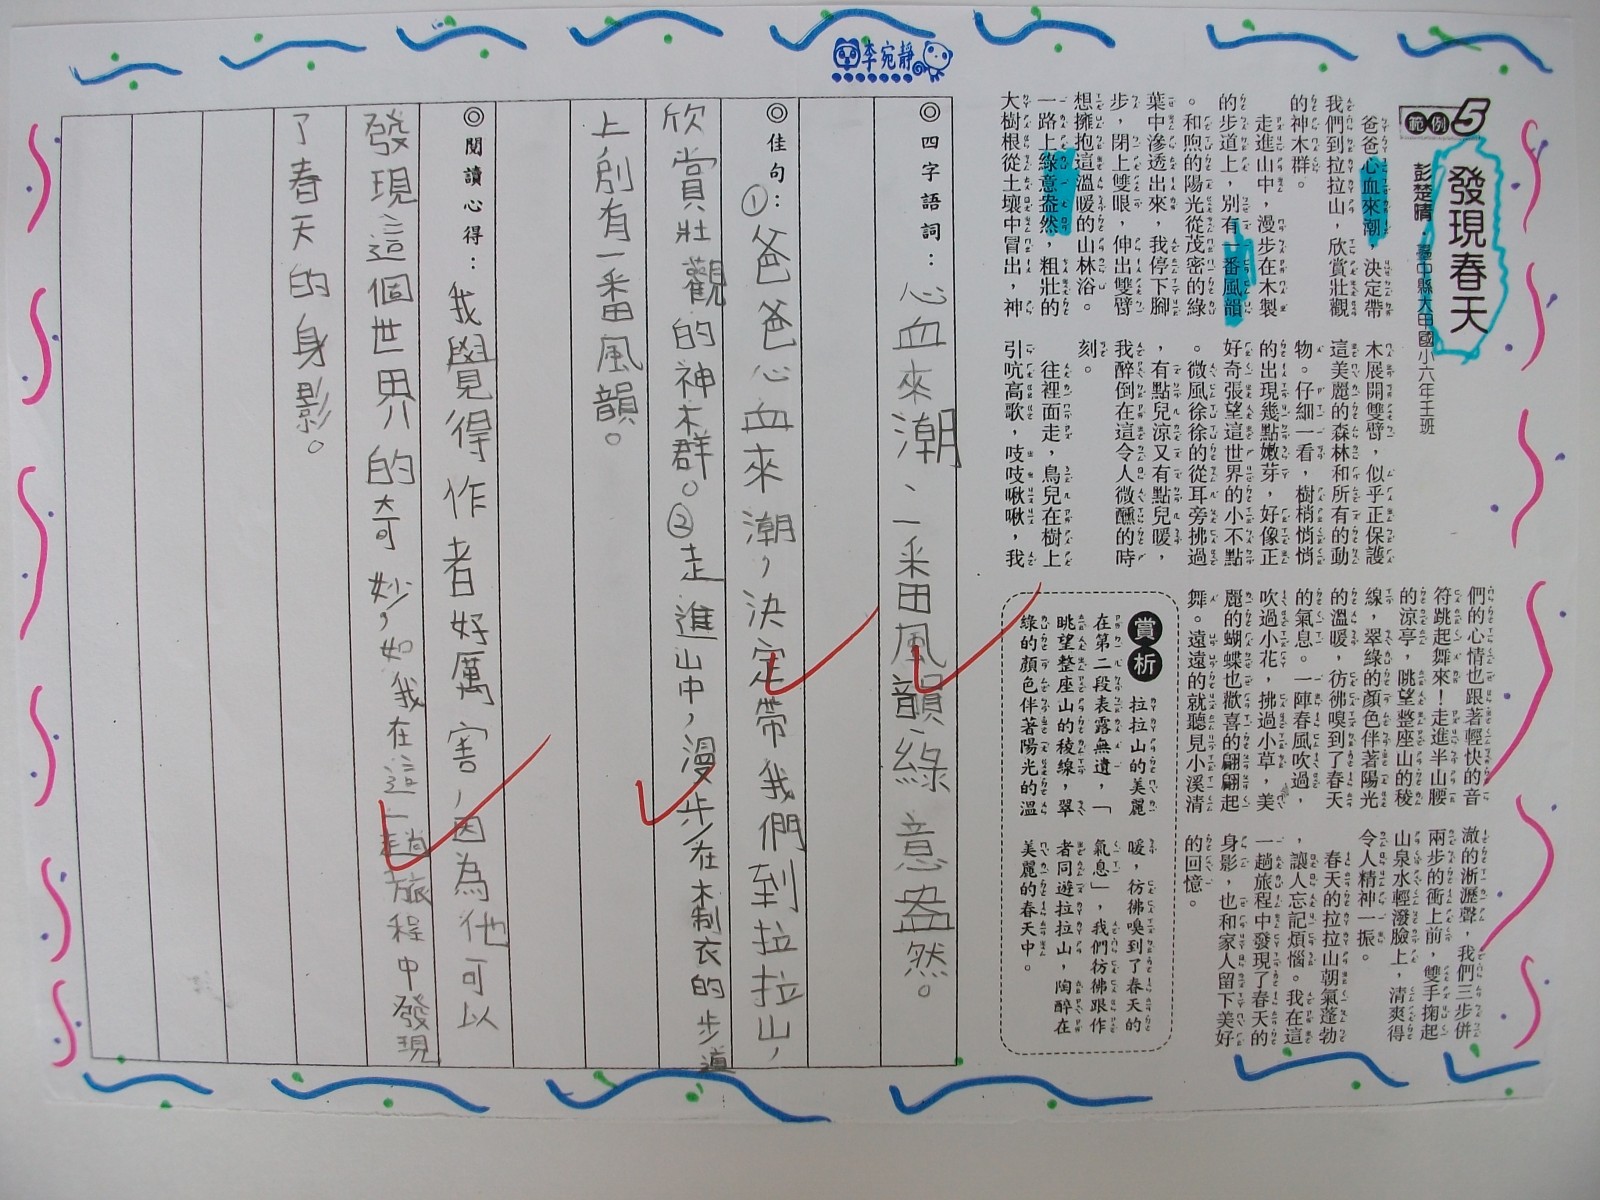 李宛靜
範例5
發現春天
彭楚晴．臺中縣大甲國小六年王班
爸爸心血來潮，決定帶
我們到拉拉山，欣賞壯觀
的神木群。
走進山中，漫步在木製
的步道上，別有一番風韻
。和煦的陽光從茂密的綠
葉中滲透出來，我停下腳
步，閉上雙眼，伸出雙臂
想擁抱這溫暖的山林浴。
一路上綠意盎然，粗壯的
大樹根從土壤中冒出，神
木展開雙臂，似乎正保護
這美麗的森林和所有的動
物。仔細一看，樹梢悄悄
的出現幾點嫩芽，好像正
好奇張望這世界的小不點
。微風徐徐的從耳旁拂過
，有點兒涼又有點兒暖，
我醉倒在這令人微醺的時
刻。
往裡面走，鳥兒在樹上
引吭高歌，吱吱啾啾，我
們的心情也跟著輕快的音
符跳起舞來！走進半山腰
的涼亭，眺望整座山的稜
線，翠綠的顏色伴著陽光
的溫暖，彷彿嗅到了春天
的氣息。一陣春風吹過，
吹過小花，拂過小草，美
麗的蝴蝶也歡喜的翩翩起
舞。遠遠的就聽見小溪清
澈的淅瀝聲，我們三步併
兩步的衝上前，雙手掬起
山泉水輕潑臉上，清爽得
令人精神一振。
春天的拉拉山朝氣蓬勃
，讓人忘記煩惱。我在這
一趟旅程中發現了春天的
身影，也和家人留下美好
的回憶。
賞析
拉拉山的美麗
在第二段表露無遺，「
眺望整座山的稜線，翠
綠的顏色伴著陽光的溫
暖，彷彿嗅到了春天的
氣息」，我們彷彿跟作
者同遊拉拉山，陶醉在
美麗的春天中。
◎四字語詞：心血來潮、一番風韻、綠意盎然。
◎佳句：①爸爸心血來潮，決定帶我們到拉拉山，
欣賞壯觀的神木群。②走進山中，漫步在木制衣的步道
上，創有一番風韻。
◎閱讀心得：我覺得作者好厲害，因為他可以
發現這個世界的奇妙，如我在這一趟旅程中發現
了春天的身影。